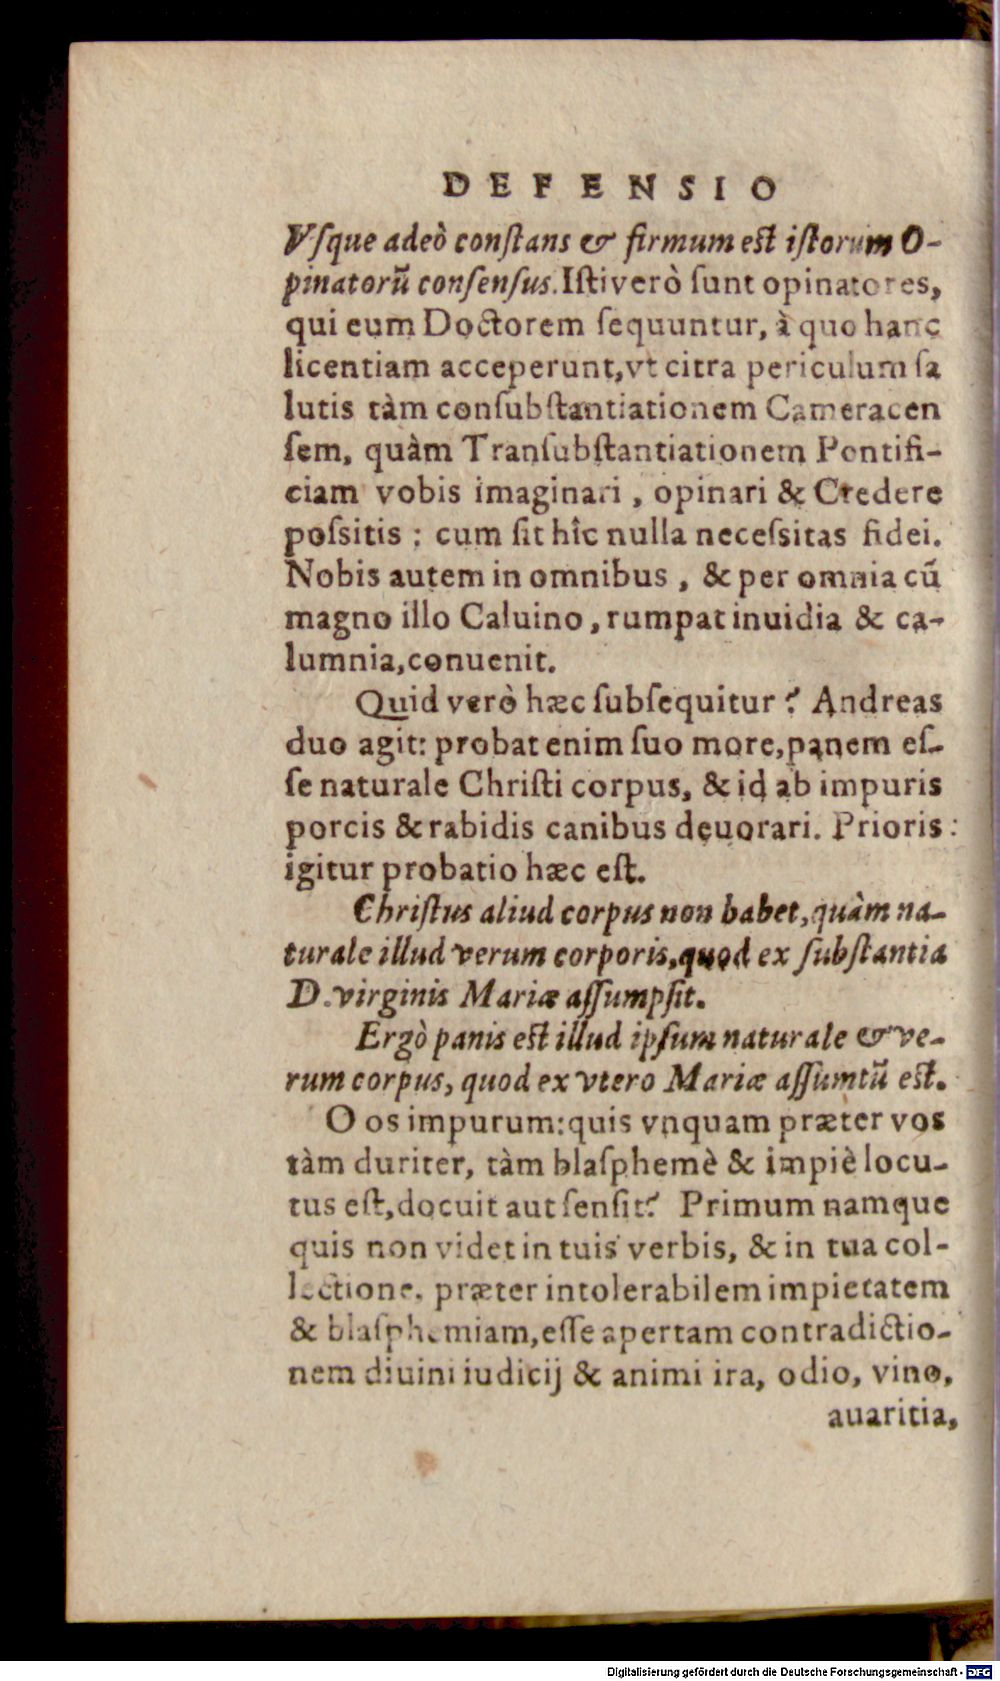 DEFENSIO
Vſque adeò conſtans & firmum eſt iſtorum O-
pinatorũ conſenſus. Iſti verò ſunt opinatores,
qui eum Doctorem ſequuntur, à quo hanc
licentiam acceperunt, vt citra periculum ſa
lutis tàm conſubſtantiationem Cameracen
ſem, quàm Tranſubſtantiationem Pontifi-
ciam vobis imaginari, opinari & Credere
poſsitis: cum ſit hîc nulla neceſsitas fidei.
Nobis autem in omnibus, & per omnia cũ
magno illo Caluino, rumpat inuidia & ca-
lumnia, conuenit.
Quid verò hæc ſubſequitur? Andreas
duo agit: probat enim ſuo more, panem eſ-
ſe naturale Chriſti corpus, & id ab impuris
porcis & rabidis canibus deuorari. Prioris
igitur probatio hæc eſt.
Chriſtus aliud corpus non habet, quàm na-
turale illud verum corporis, quod ex ſubſtantia
D. virginis Mariæ aſſumpſit.
Ergò panis eſt illud ipſum naturale & ve-
rum corpus, quod ex vtero Mariæ aſſumtũ eſt.
O os impurum: quis vnquam præter vos
tàm duriter, tàm blaſphemè & impiè locu-
tus eſt, docuit aut ſenſit? Primum namque
quis non videt in tuis verbis, & in tua col-
lectione, præter intolerabilem impietatem
& blaſphemiam, eſſe apertam contradictio-
nem diuini iudicij & animi ira, odio, vino,
auaritia,
Digitalisierung gefördert durch die Deutsche Forschungsgemeinschaft - DFG